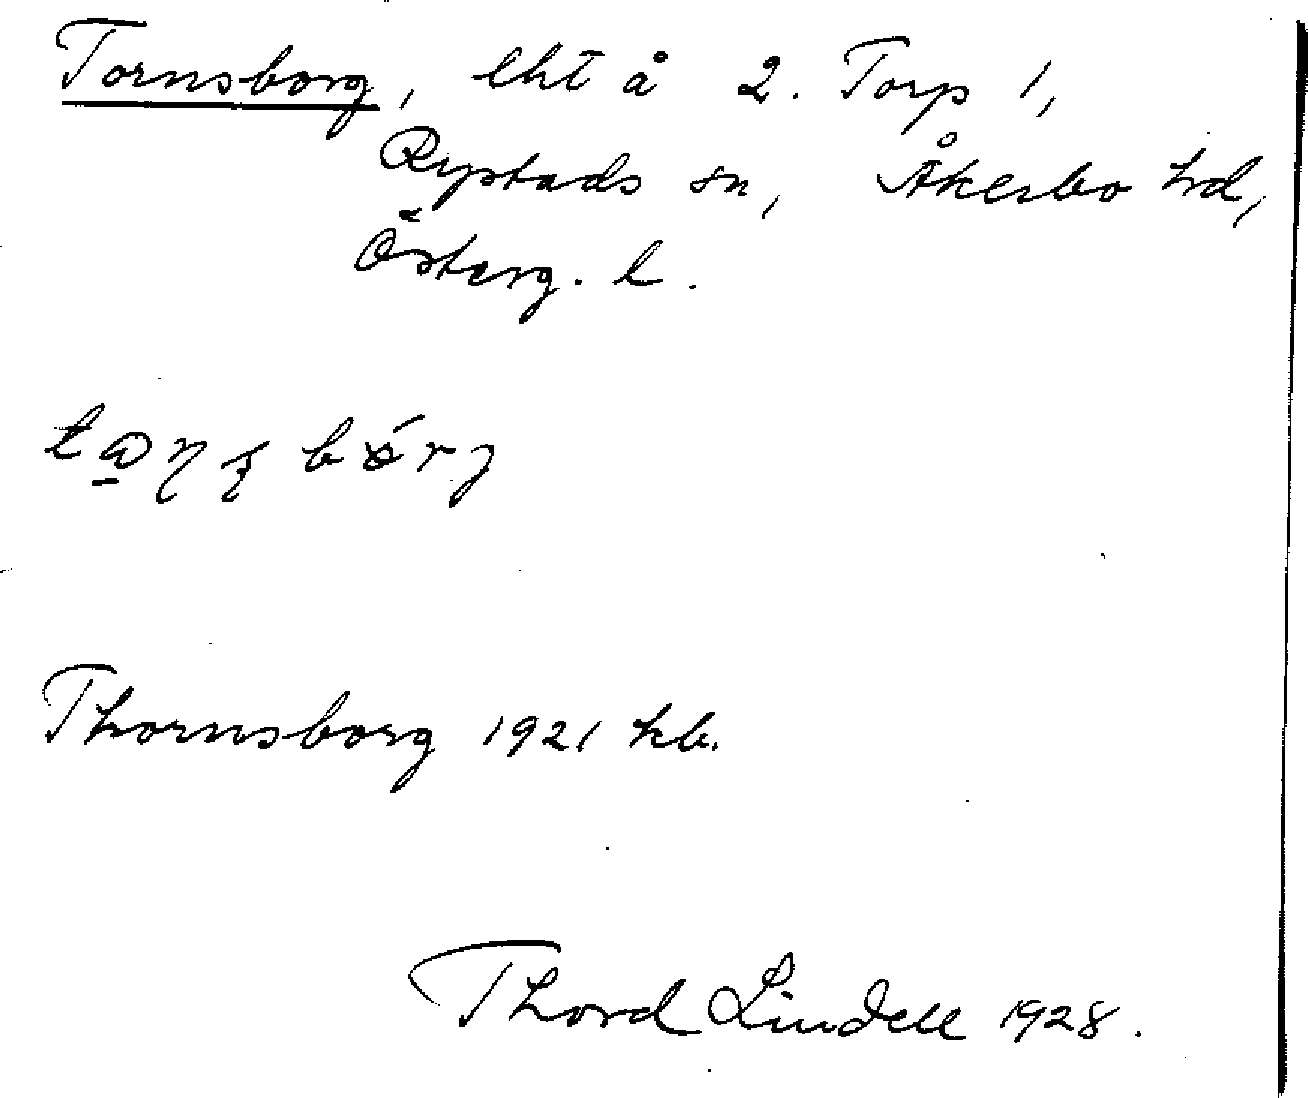 Tornsborg, lht å 2. Torp 1,
Rystads sn, Åkerbo hd,
Österg. l.
Thornsborg 1921 kb.
Thord Lindell 1928.